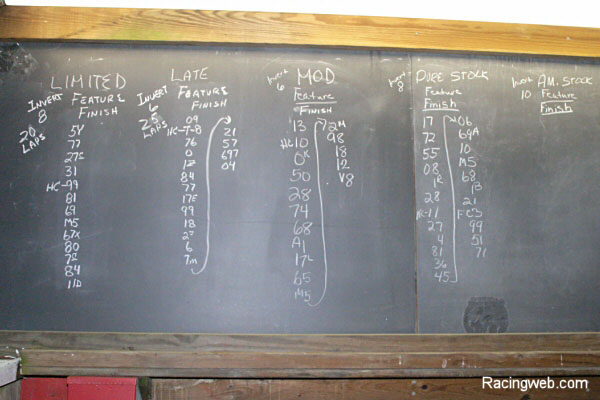 LIMITED
INVERT
8
20
LAPS
FEATURE
FINISH
5V
77
27S
31
HC-99
81
69
M5
67X
80
7S
84
11D
LATE
INVERT
6
25
LAPS
FEATURE
FINISH
09
HC-T-B
76
0
1Z
84
77
17E
99
1B
6
7M
21
57
697
04
MOD
Invert
6
Feature
Finish
13
HC10
0K
50
28
74
68
A1
17L
65
M5
2M
98
18
12
V8
PURE STOCK
Invert
8
Feature
Finish
17
72
55
08
28
27
4
81
36
45
06
69A
10
M5
68
1B
21
99
51
71
AM. STOCK
Invert
10
Feature
Finish
Racingweb.com